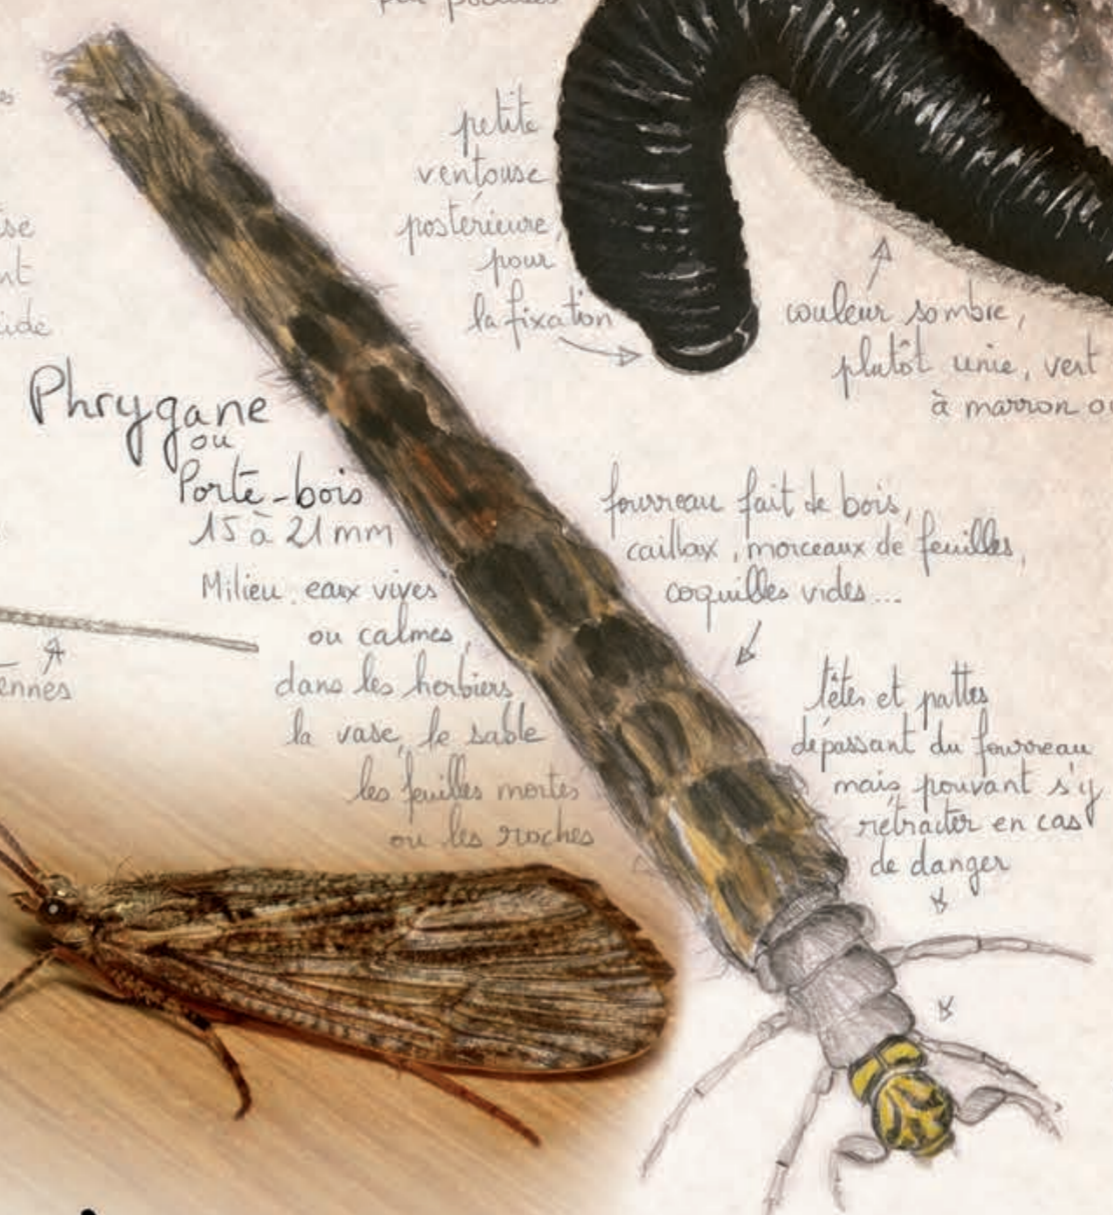 petite
ventouse
postérieure,
pour
la fixation
couleur sombre,
plutôt unie, vert
à marron
Phrygane
ou
Porte-bois
15 à 21 mm
Milieu : eaux vives
ou calmes,
dans les herbiers,
la vase, le sable
les feuilles mortes
ou les roches
fourreau fait de bois,
caillox, morceaux de feuilles,
coquilles vides...
têtes et pattes
dépassant du fourreau
mais pouvant s'y
rétracter en cas
de danger